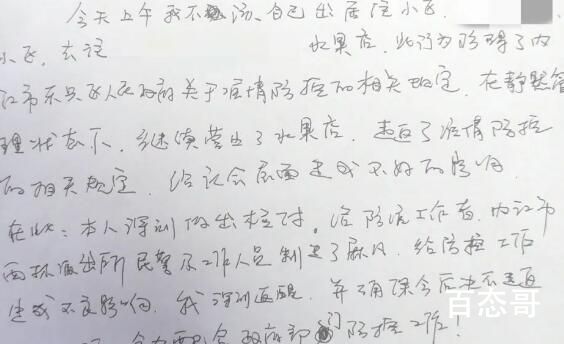 今天上午我不 汤、自己出居住小区
小区,去往 水果店,此行为妨碍了内
江市东兴区人民政府关于疫情防控的相关规定,在静默管
理状态下,继续营业了水果店,违反了疫情防控
的相关规定,给社会层面造成不好的影响
在此:本人深刻做出检讨。给防疫工作者,内江市
西林派出所民警及工作人员制造了麻烦,给防控工作
造成不良影响,我深刻反醒,并确保今后决不违反
全力配合政府部门防控工作!
百态哥